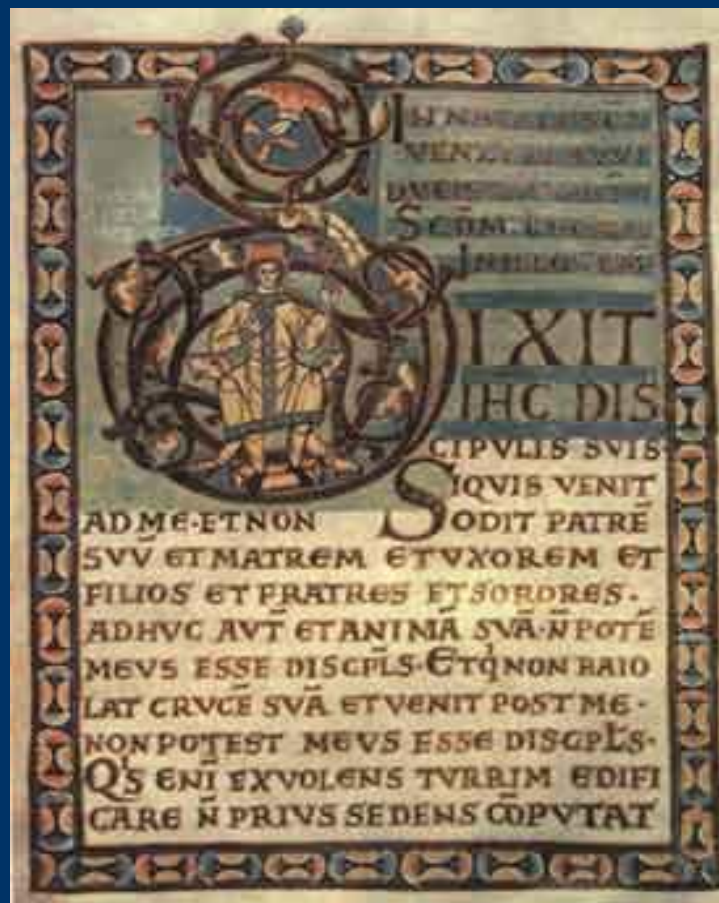 IN
VEN
DVCIS
SCDM
IN ILLO
DIXIT
IHC DIS
CIPVLIS SVIS·
SIQVIS VENIT
AD ME·ET NON ODIT PATRĒ
SVV̄ ET MATREM ET VXOREM ET
FILIOS ET FRATRES ET SORORES·
ADHVC AVT̄ ET ANIMĀ SVĀ·N̄ POTĒ
MEVS ESSE DISCPLS·ETQ̇ NON BAIO
LAT CRVCĒ SVĀ ET VENIT POST ME·
NON POTEST MEVS ESSE DISCPLS·
Q'S ENĪ EX VOLENS TVRRIM EDIFI
CARE N̄ PRIVS SEDENS CŌPVTAT